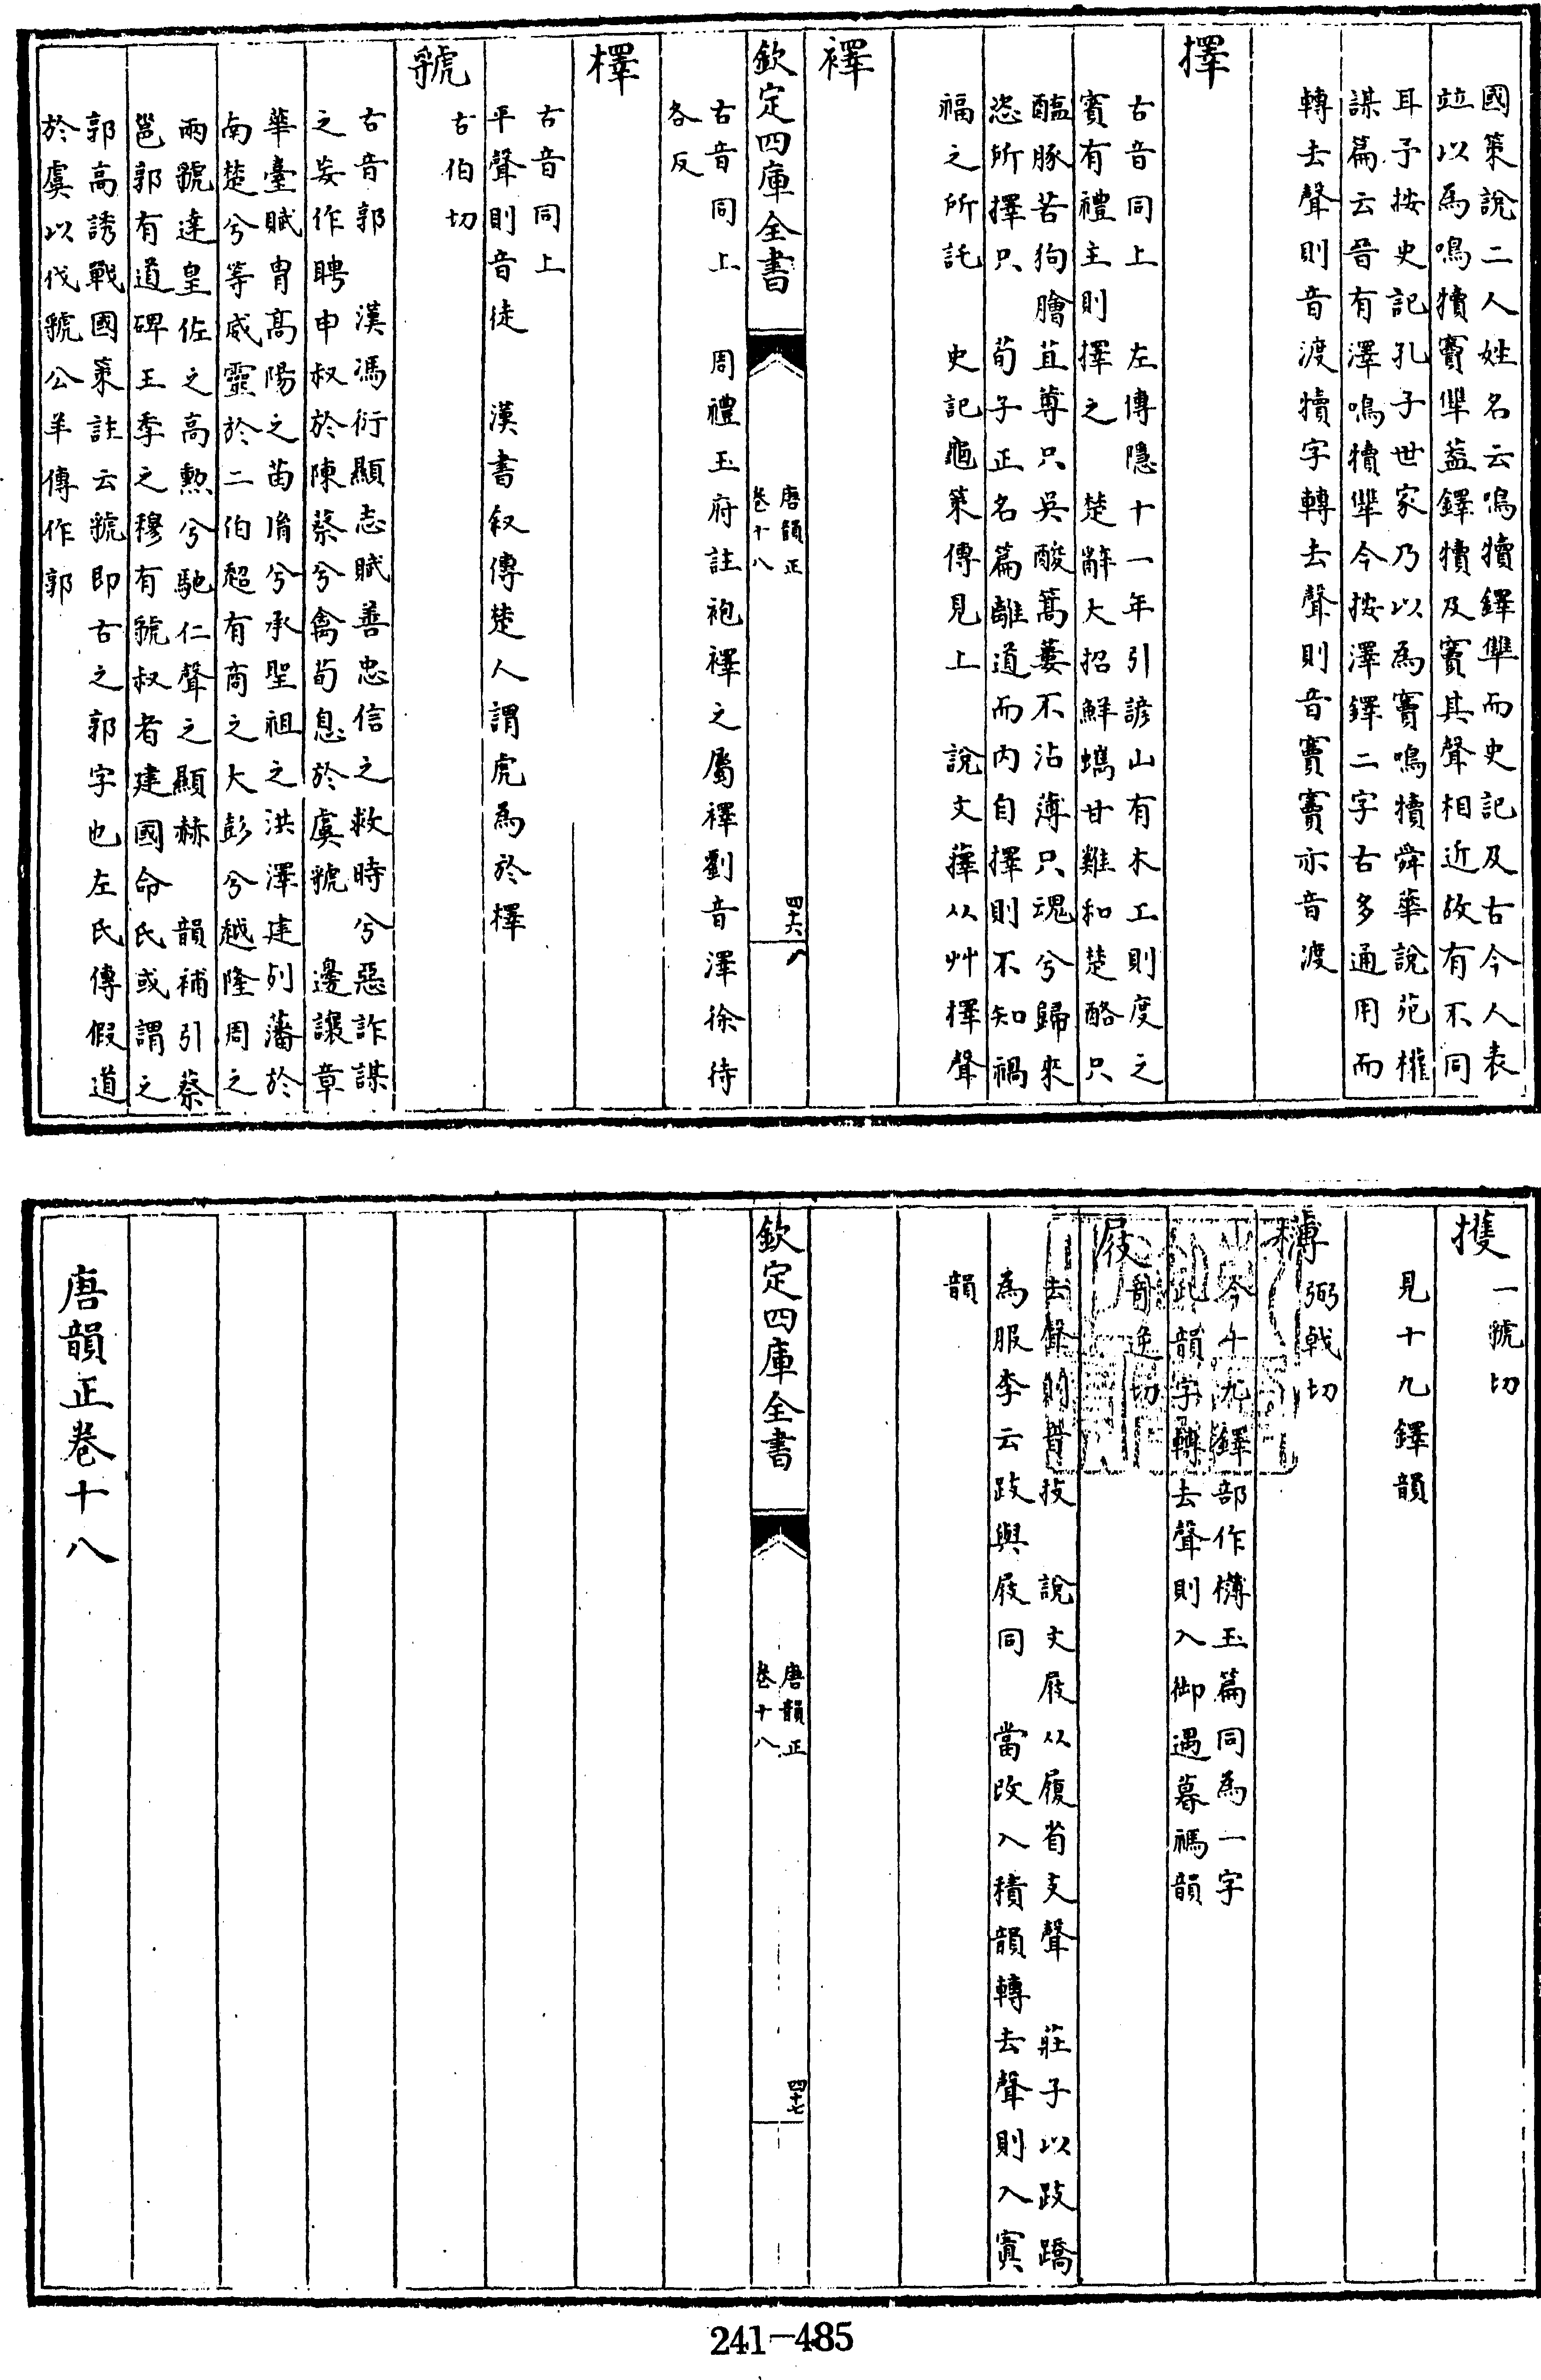 國策說二人姓名云鳴犢鐸犨而史記及古今人表
竝以為鳴犢竇犨葢鐸犢及竇其聲相近故有不同
耳予按史記孔子世家乃以為竇鳴犢舜華說苑權
謀篇云晉有澤鳴犢犨今按澤鐸二字古多通用而
轉去聲則音渡犢字轉去聲則音竇竇亦音渡
擇
古音同上　左傳隱十一年引諺山有木工則度之
賓有禮主則擇之　楚辭大招鮮蠵甘雞和楚酪只
醢豚苦狗膾苴蓴只吳酸蒿蔞不沾薄只魂兮歸來
恣所擇只　荀子正名篇離道而內自擇則不知禍
福之所託　史記龜策傳見上　說文蘀从艸擇聲
襗
欽定四庫全書
唐韻正
卷十八
四十六
古音同上　周禮玉府註袍襗之屬襗劉音澤徐待
各反
檡
古音同上
平聲則音徒　漢書叙傳楚人謂虎為於檡
虢
古伯切
古音郭　漢馮衍顯志賦善忠信之救時兮惡詐謀
之妄作聘申叔於陳蔡兮禽荀息於虞虢　邊讓章
華臺賦冑高陽之苗胤兮承聖祖之洪澤建列藩於
南楚兮等威靈於二伯超有商之大彭兮越隆周之
兩虢達皇佐之高勲兮馳仁聲之顯赫　韻補引蔡
邕郭有道碑王季之穆有虢叔者建國命氏或謂之
郭高誘戰國策註云虢即古之郭字也左氏傳假道
於虞以伐虢公羊傳作郭
擭
一虢切
見十九鐸韻
欂
弼戟切
今十九鐸部作欂玉篇同為一字
此韻字轉去聲則入御遇暮禡韻
屐
奇逆切
去聲則音技　說文屐从履省支聲　莊子以跂蹻
為服李云跂與屐同　當改入積韻轉去聲則入寘
韻
欽定四庫全書
唐韻正
卷十八
四十七
唐韻正卷十八
241-485